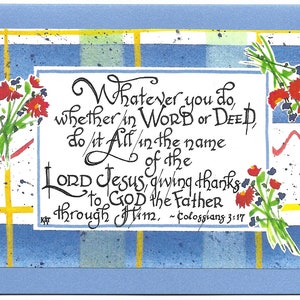 Whatever you do,
whether in WORD or DEED,
do it All in the name
of the
LORD JESUS, giving thanks
to GOD the FATHER
through Him. ~Colossians 3:17